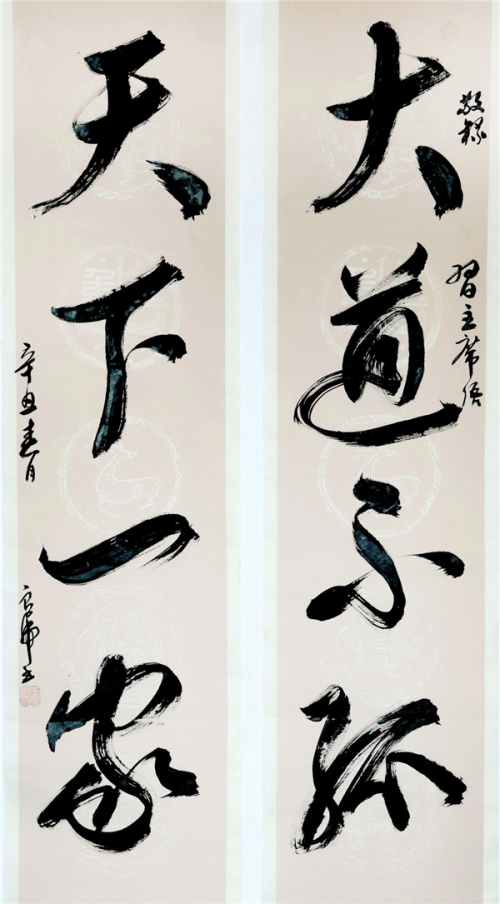 大道不孤
敬録
習主席语
天下一家
辛丑春月